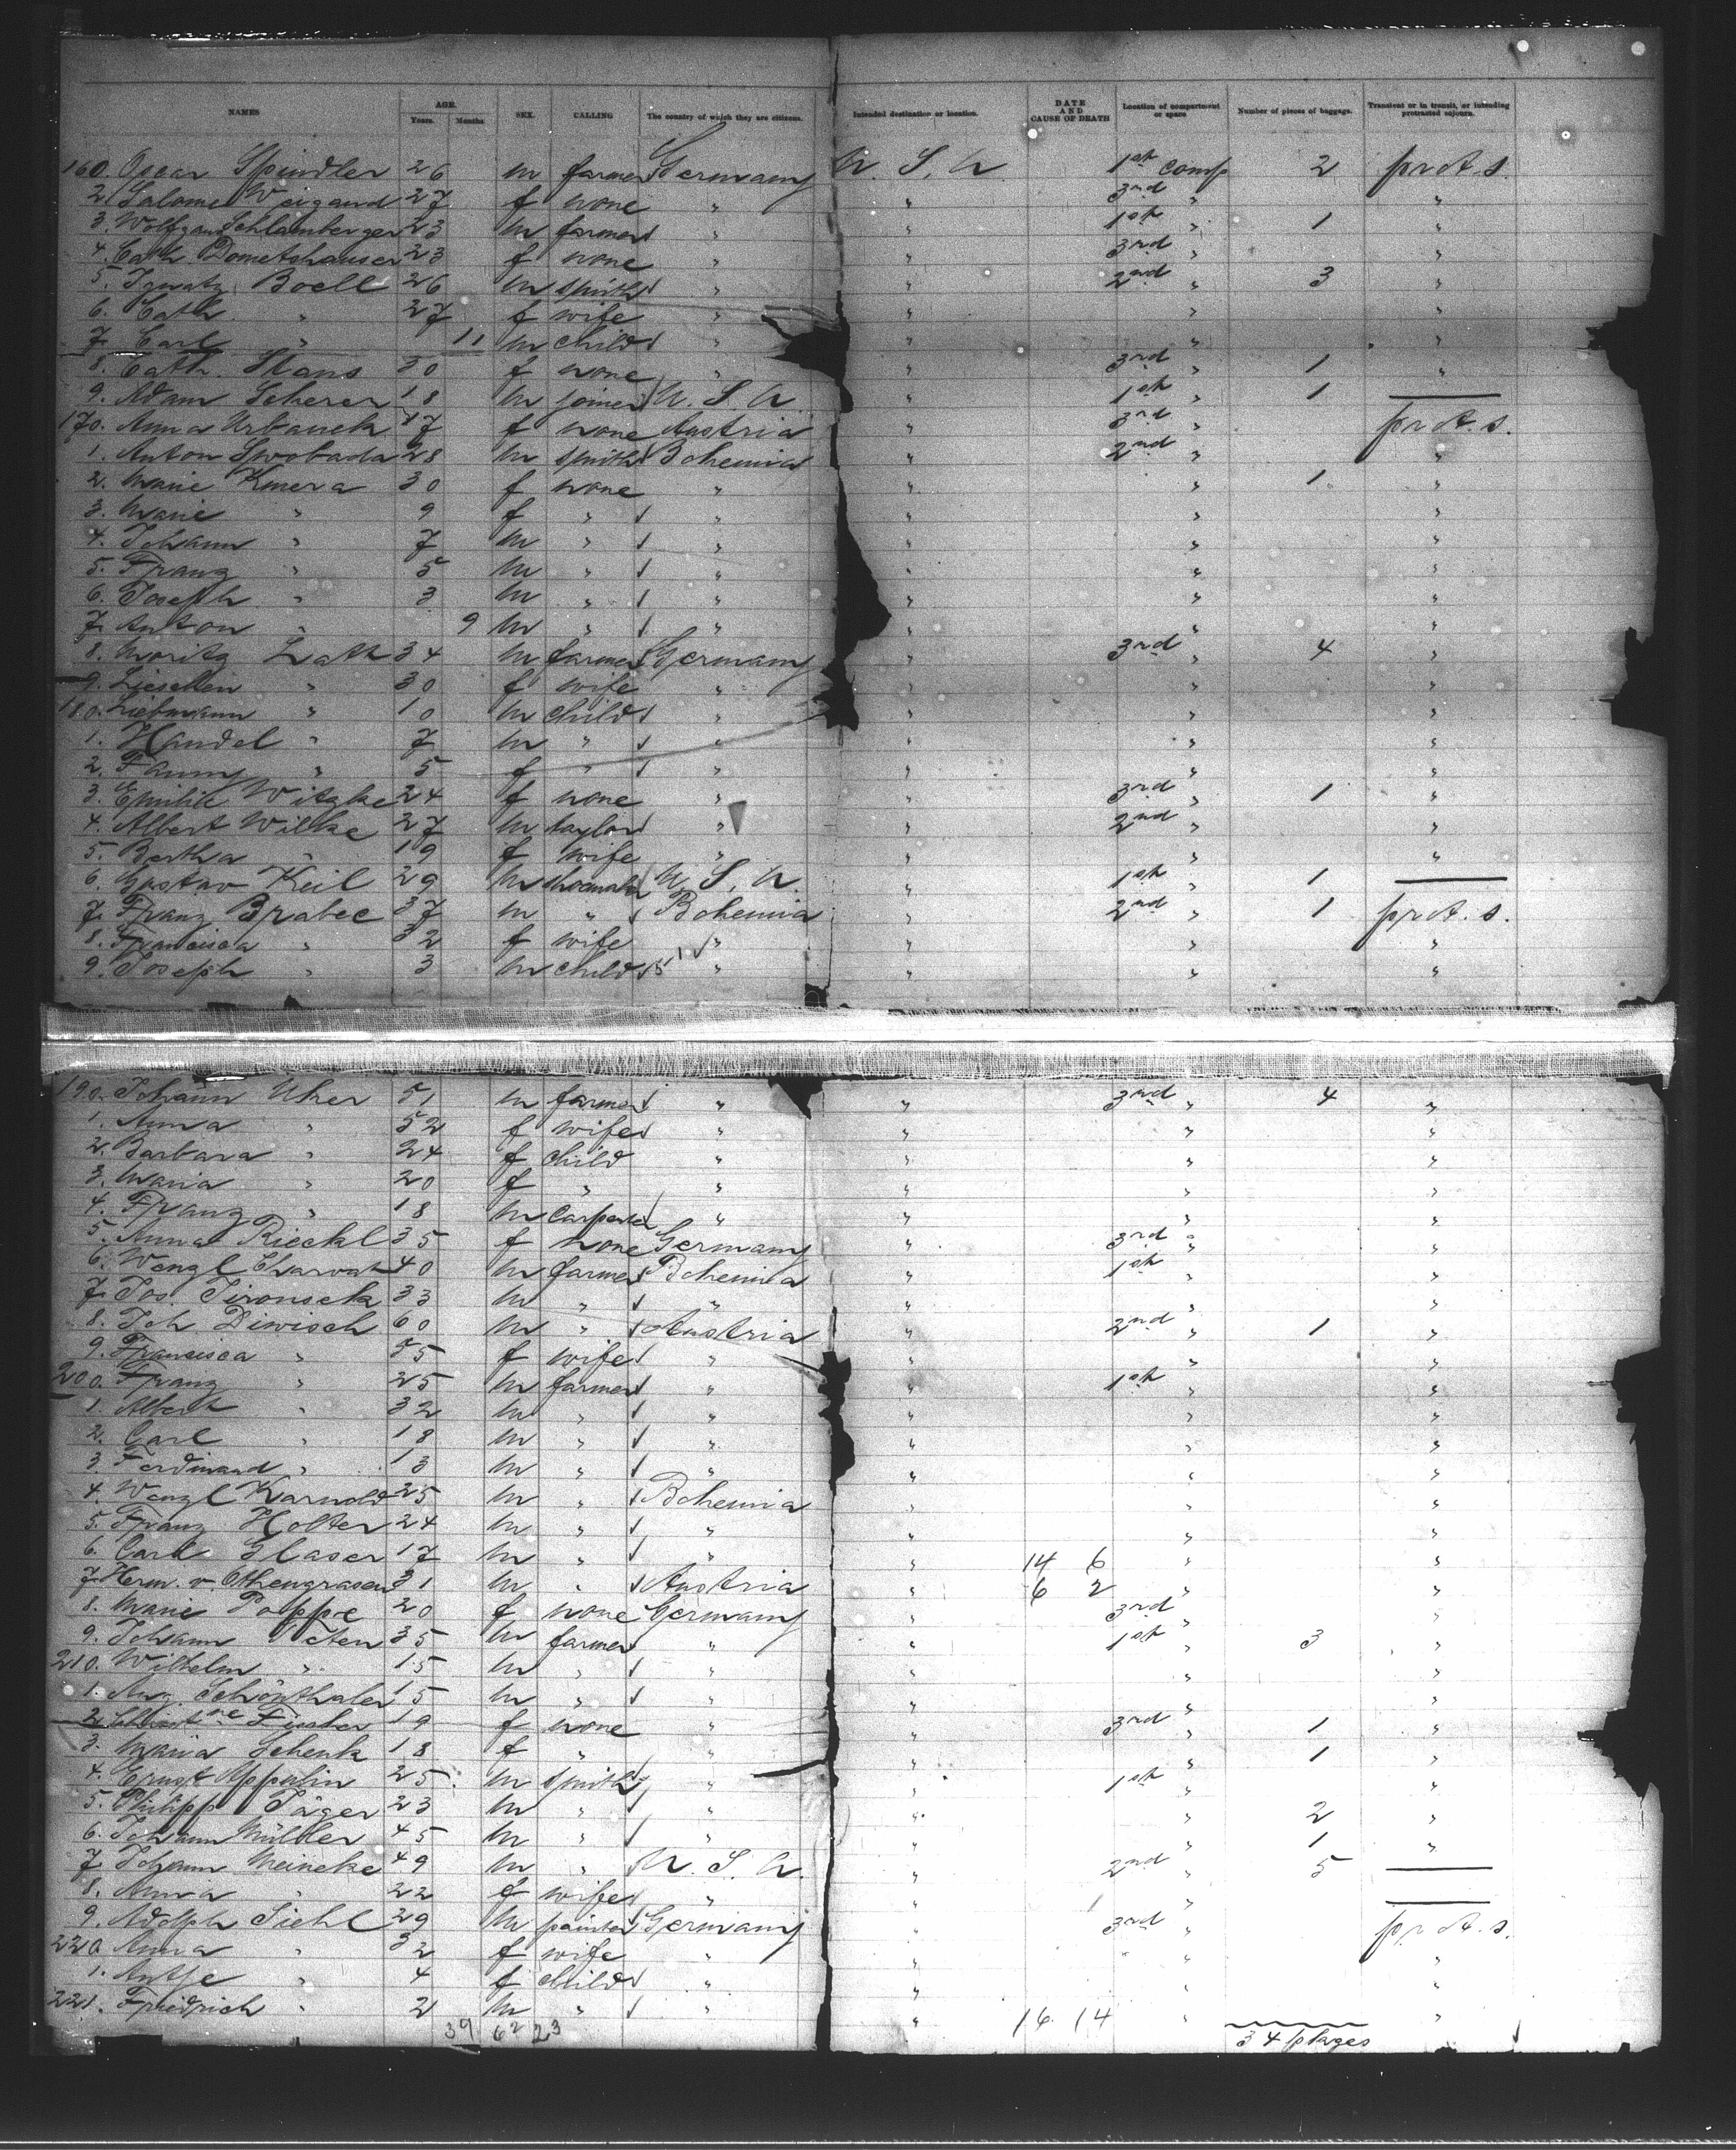 NAMES AGE. Years. Months SEX. CALLING The country of which they are citizens. Intended destination or location. DATE AND CAUSE OF DEATH Location of compartment or space Number of pieces of baggage. Transient or in transit, or intending protracted sojourn.
160. Oscar Spindler 26 m farmer Germany U. S. A 1st comp 2 prot. s.
2 Salome Weigand 27 f none " " 3rd " "
3. Wolfgang Schlamberger 23 m farmer " " 1st " 1 "
4. Cath Dometshauser 23 f none " " 3rd " "
5. Ignatz Boell 26 m smith " " 2nd " 3 "
6. Cath. " 27 f wife " " " "
7. Carl " 11 m child " " " "
8. Cath. Stans 30 f none " " 3rd " 1 "
9. Adam Scherer 18 m joiner U. S. A " 1st " 1 —
170. Anna Urbanek 17 f none Austria " 3rd " prot. s.
1. Anton Swoboda 28 m smith Bohemia " 2nd " "
2. Marie Kmera 30 f none " " " 1 "
3. Marie " 9 f " " " " "
4. Johann " 7 m " " " " "
5. Franz " 5 m " " " " "
6. Joseph " 3 m " " " " "
7. Anton " 9 m " " " " "
8. Moritz Lath 34 m farmer Germany " 3rd " 4 "
9. Lieschen " 30 f wife " " " "
180. Liebmann " 10 m child " " " "
1. Handel " 7 m " " " " "
2. Fanny " 5 f " " " " "
3. Emilie Witzke 24 f none " " 3rd " 1 "
4. Albert Wilke 27 m taylor " " 2nd " "
5. Bertha " 19 f wife " " " "
6. Gustav Keil 29 m shoemaker U. S. A. " 1st " 1 —
7. Franz Brabec 37 m " Bohemia " 2nd " 1 prot. s.
8. Francisca " 32 f wife " " " "
9. Joseph " 3 m child " " " "
190. Johann Uher 51 m farmer " " 3rd " 4 "
1. Anna " 52 f wife " " " "
2. Barbara " 24 f child " " " "
3. Maria " 20 f " " " " "
4. Franz " 18 m carpenter " " " "
5. Anna Rieckl 35 f none Germany " 3rd " "
6. Wenzl Charvat 40 m farmer Bohemia " 1st " "
7. Jos. Jironsek 33 m " " " " "
8. Joh Diwisch 60 m " Austria " 2nd " 1 "
9. Francisca " 55 f wife " " " "
200. Franz " 25 m farmer " " 1st " "
1. Albert " 32 m " " " " "
2. Carl " 18 m " " " " "
3. Ferdinand " 13 m " " " " "
4. Wenzl Karnold 25 m " Bohemia " " "
5. Franz Holter 24 m " " " " "
6. Carl Glaser 17 m " " " 14 6 " "
7. Herm. v. 31 m " Austria " 6 2 " "
8. Marie Poppe 20 f none Germany " 3rd " "
9. Johann 35 m farmer " " 1st " 3 "
210. Wilhelm " 15 m " " " " "
1. Aug. Schönthaler 15 m " " " " "
2. Christne Fischer 19 f none " " 3rd " 1 "
3. Maria Schenk 18 f " " " " 1 "
4. Ernst Uppulin 25 m smith " " 1st " "
5. Philipp Jäger 23 m " " " " 2 "
6. Johann Müller 45 m " " " " 1 "
7. Johann Meineke 49 m " U. S. A. " 2nd " 5 —
8. Anna " 22 f wife " " " —
9. Adolph Siehl 29 m painter Germany " 3rd " prot. s.
220 Anna " 32 f wife " " " "
1. Antje " 4 f child " " " "
221. Friedrich " 2 m " " " 16 14 " "
39 62 23 34 pkages